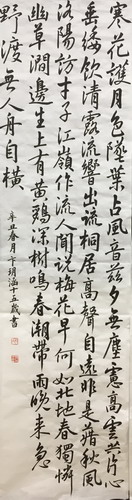 寒花護月色墜葉占風音茲夕無塵慮高雲共片心
垂緌飲清露流響出疏桐居高聲自遠非是藉秋風
洛陽訪才子江嶺作流人聞說梅花早何如北地春獨憐
幽草澗邊生上有黃鸝深樹鳴春潮帶雨晚來急
野渡無人舟自橫
辛丑春月卞玥涵十五歲書